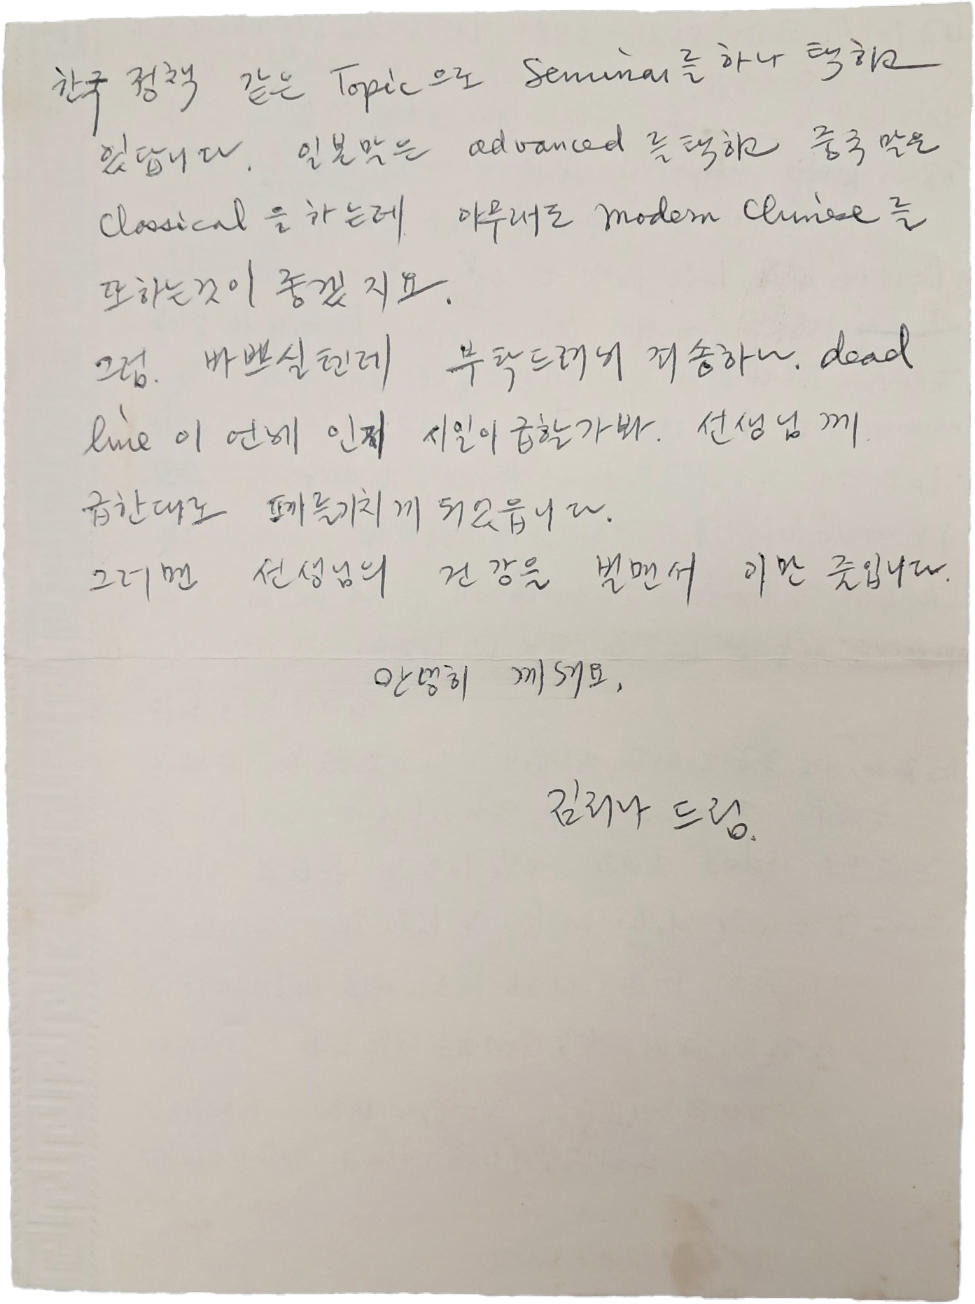 한국 정책 같은 Topic으로 Seminar를 하나 택하고
있답니다. 일본말은 advanced 를 택하고 중국 말은
Classical 을 하는데 아무래도 modern Chinese 를
또하는것이 좋겠 지요.
그럼. 바쁘실텐데 부탁드려서 죄송하나. dead
line 이 언제 인지 시일이 급할가봐. 선생님 께
급한대로 폐를끼치게 되었읍니다.
그러면 선생님의 건강을 빌면서 이만 줏입니다.
안녕히 께세요.
김리나 드림.